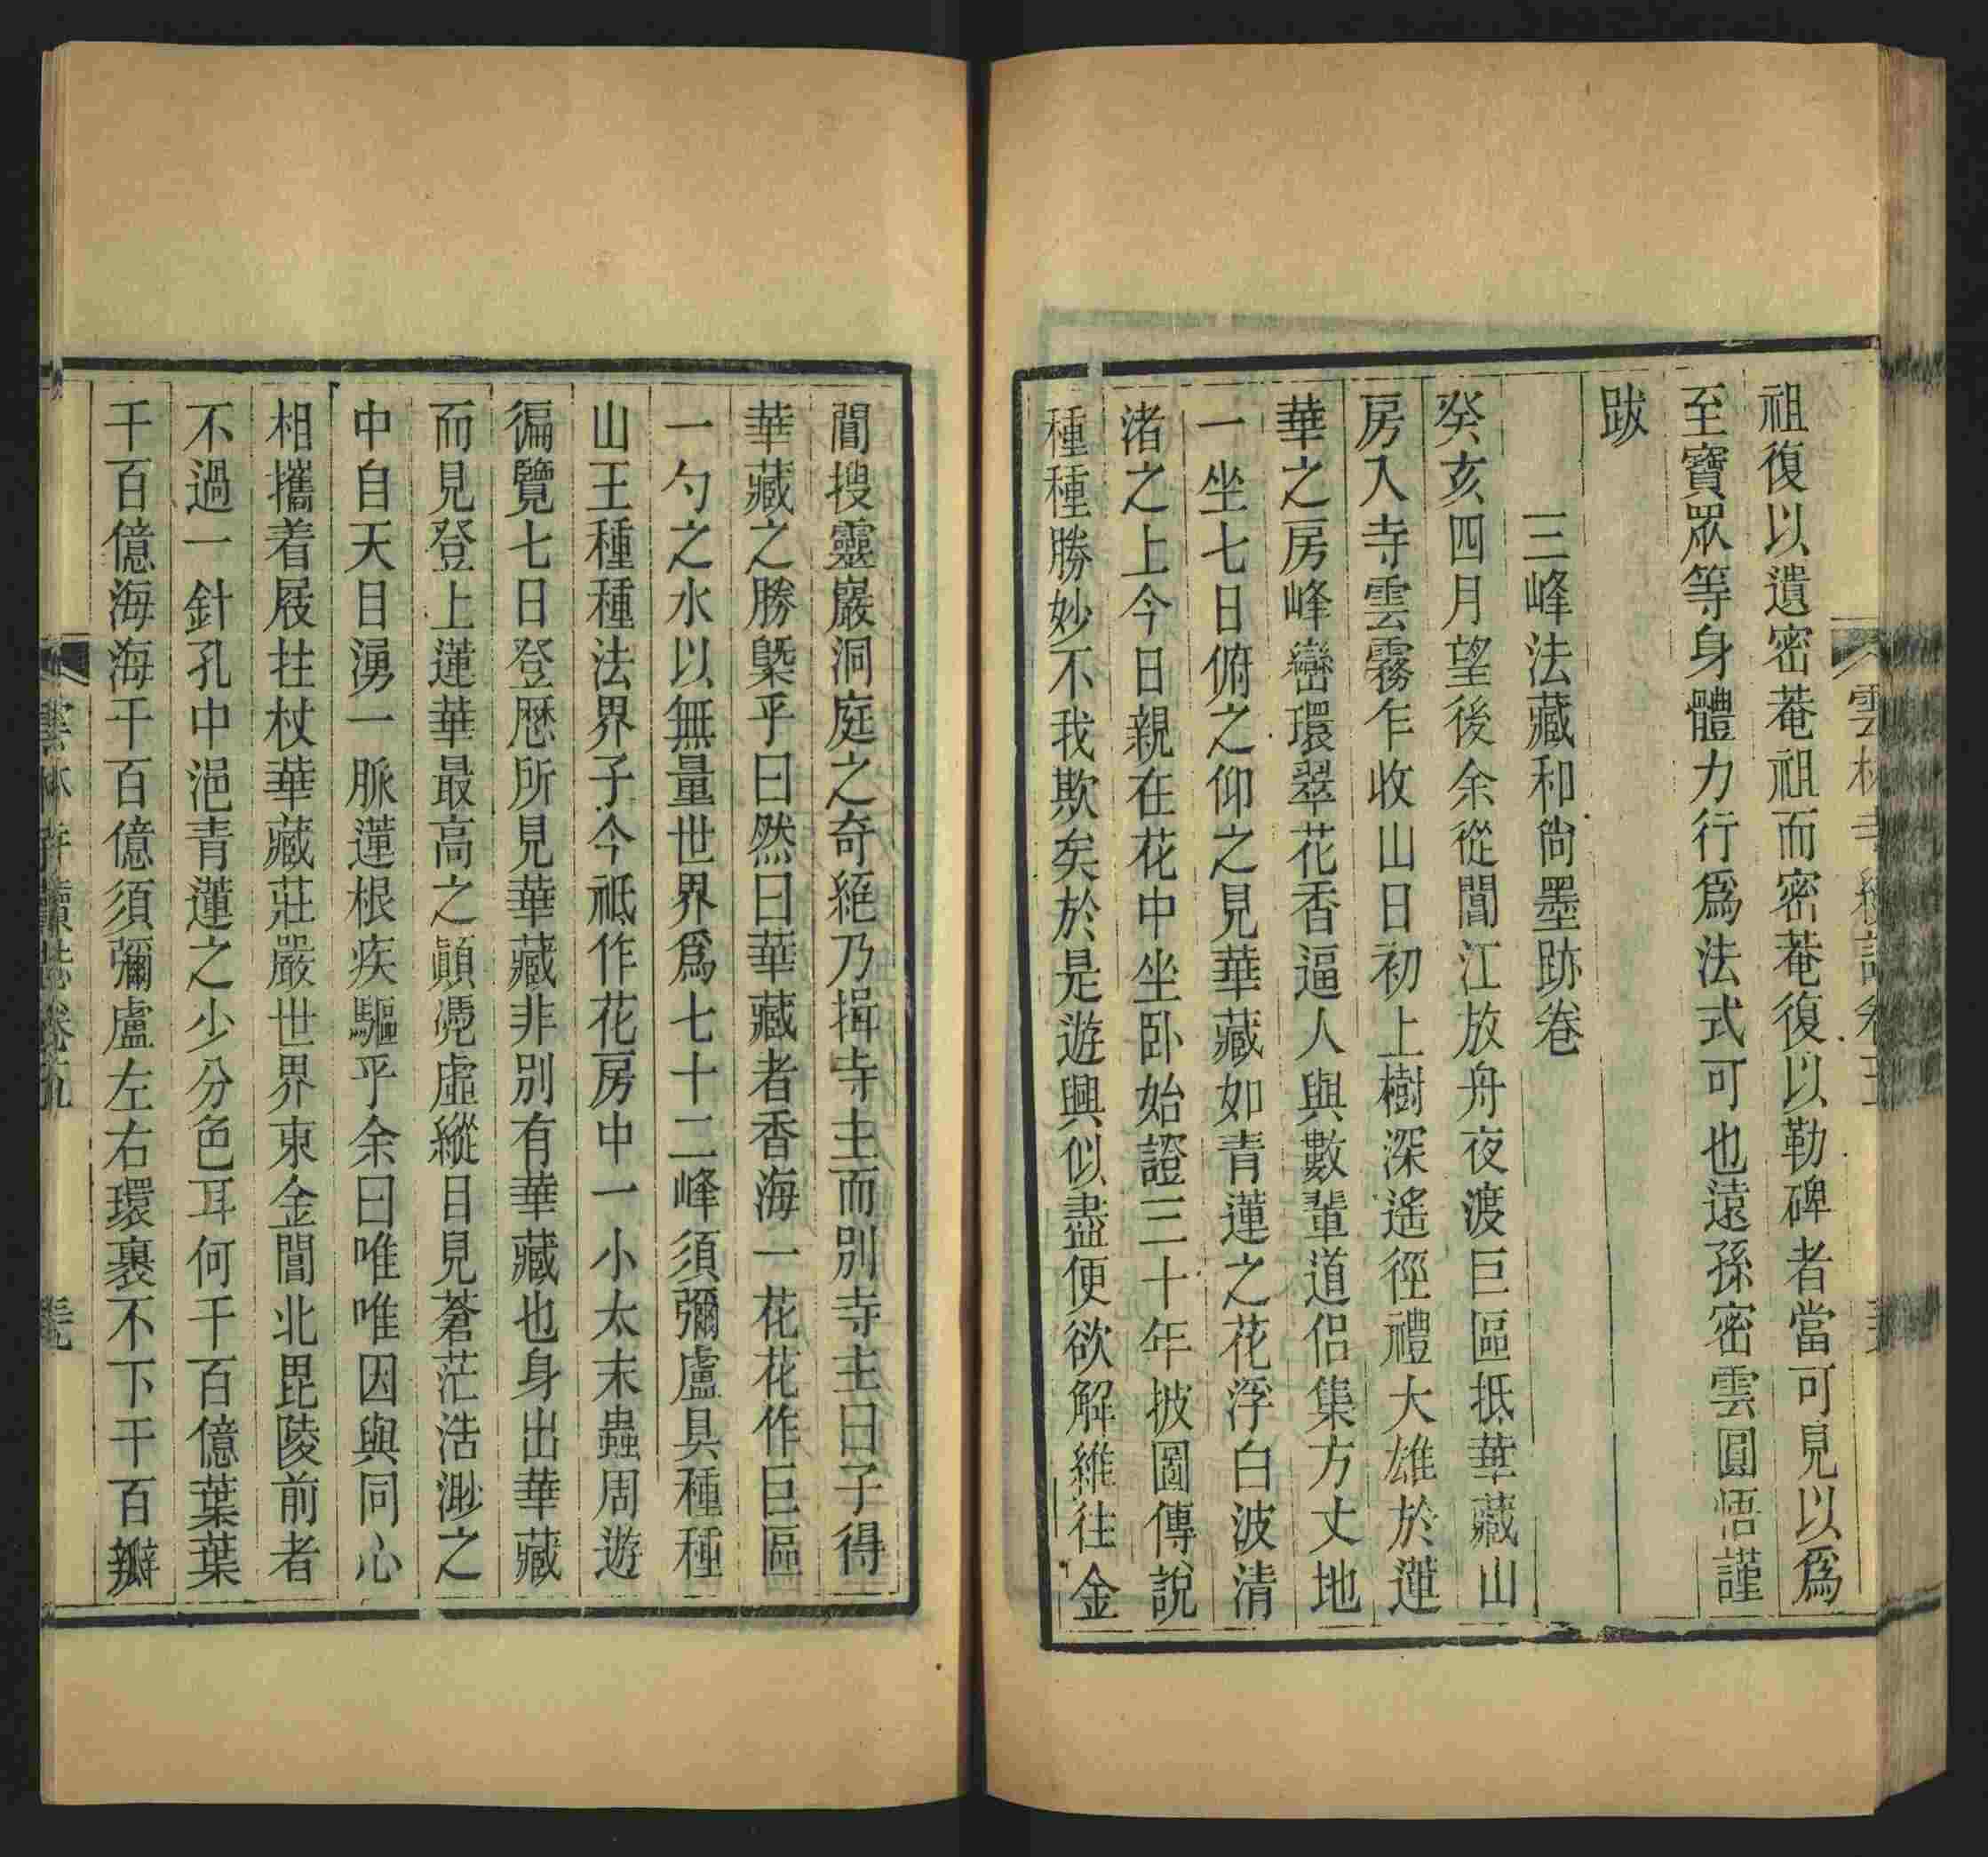 祖復以遺密菴祖而密菴復以勒碑者當可見以爲
至寶眾等身體力行爲法式可也遠孫密雲圓悟謹
跋
三峰法藏和尙墨跡卷
癸亥四月望後余從閶江放舟夜渡巨區抵華藏山
房入寺雲霧乍收山日初上樹深遙徑禮大雄於蓮
華之房峰巒環翠花香逼人與數輩道侶集方丈地
一坐七日俯之仰之見華藏如青蓮之花浮白波清
渚之上今日親在花中坐卧始證三十年披圖傳說
種種勝妙不我欺矣於是遊興似盡便欲解維往金
閶搜靈巖洞庭之奇絕乃揖寺主而別寺主曰子得
華藏之勝槩乎曰然曰華藏者香海一花花作巨區
一勺之水以無量世界爲七十二峰須彌盧具種種
山王種種法界子今祗作花房中一小太末蟲周遊
徧覽七日登歷所見華藏非別有華藏也身出華藏
而見登上蓮華最高之顚凴虛縱目見蒼茫浩渺之
中自天目湧一脈蓮根疾驅乎余曰唯唯因與同心
相攜着屐拄杖華藏莊嚴世界東金閶北毘陵前者
不過一針孔中浥青蓮之少分色耳何千百億葉葉
千百億海海千百億須彌盧左右環裹不下千百瓣